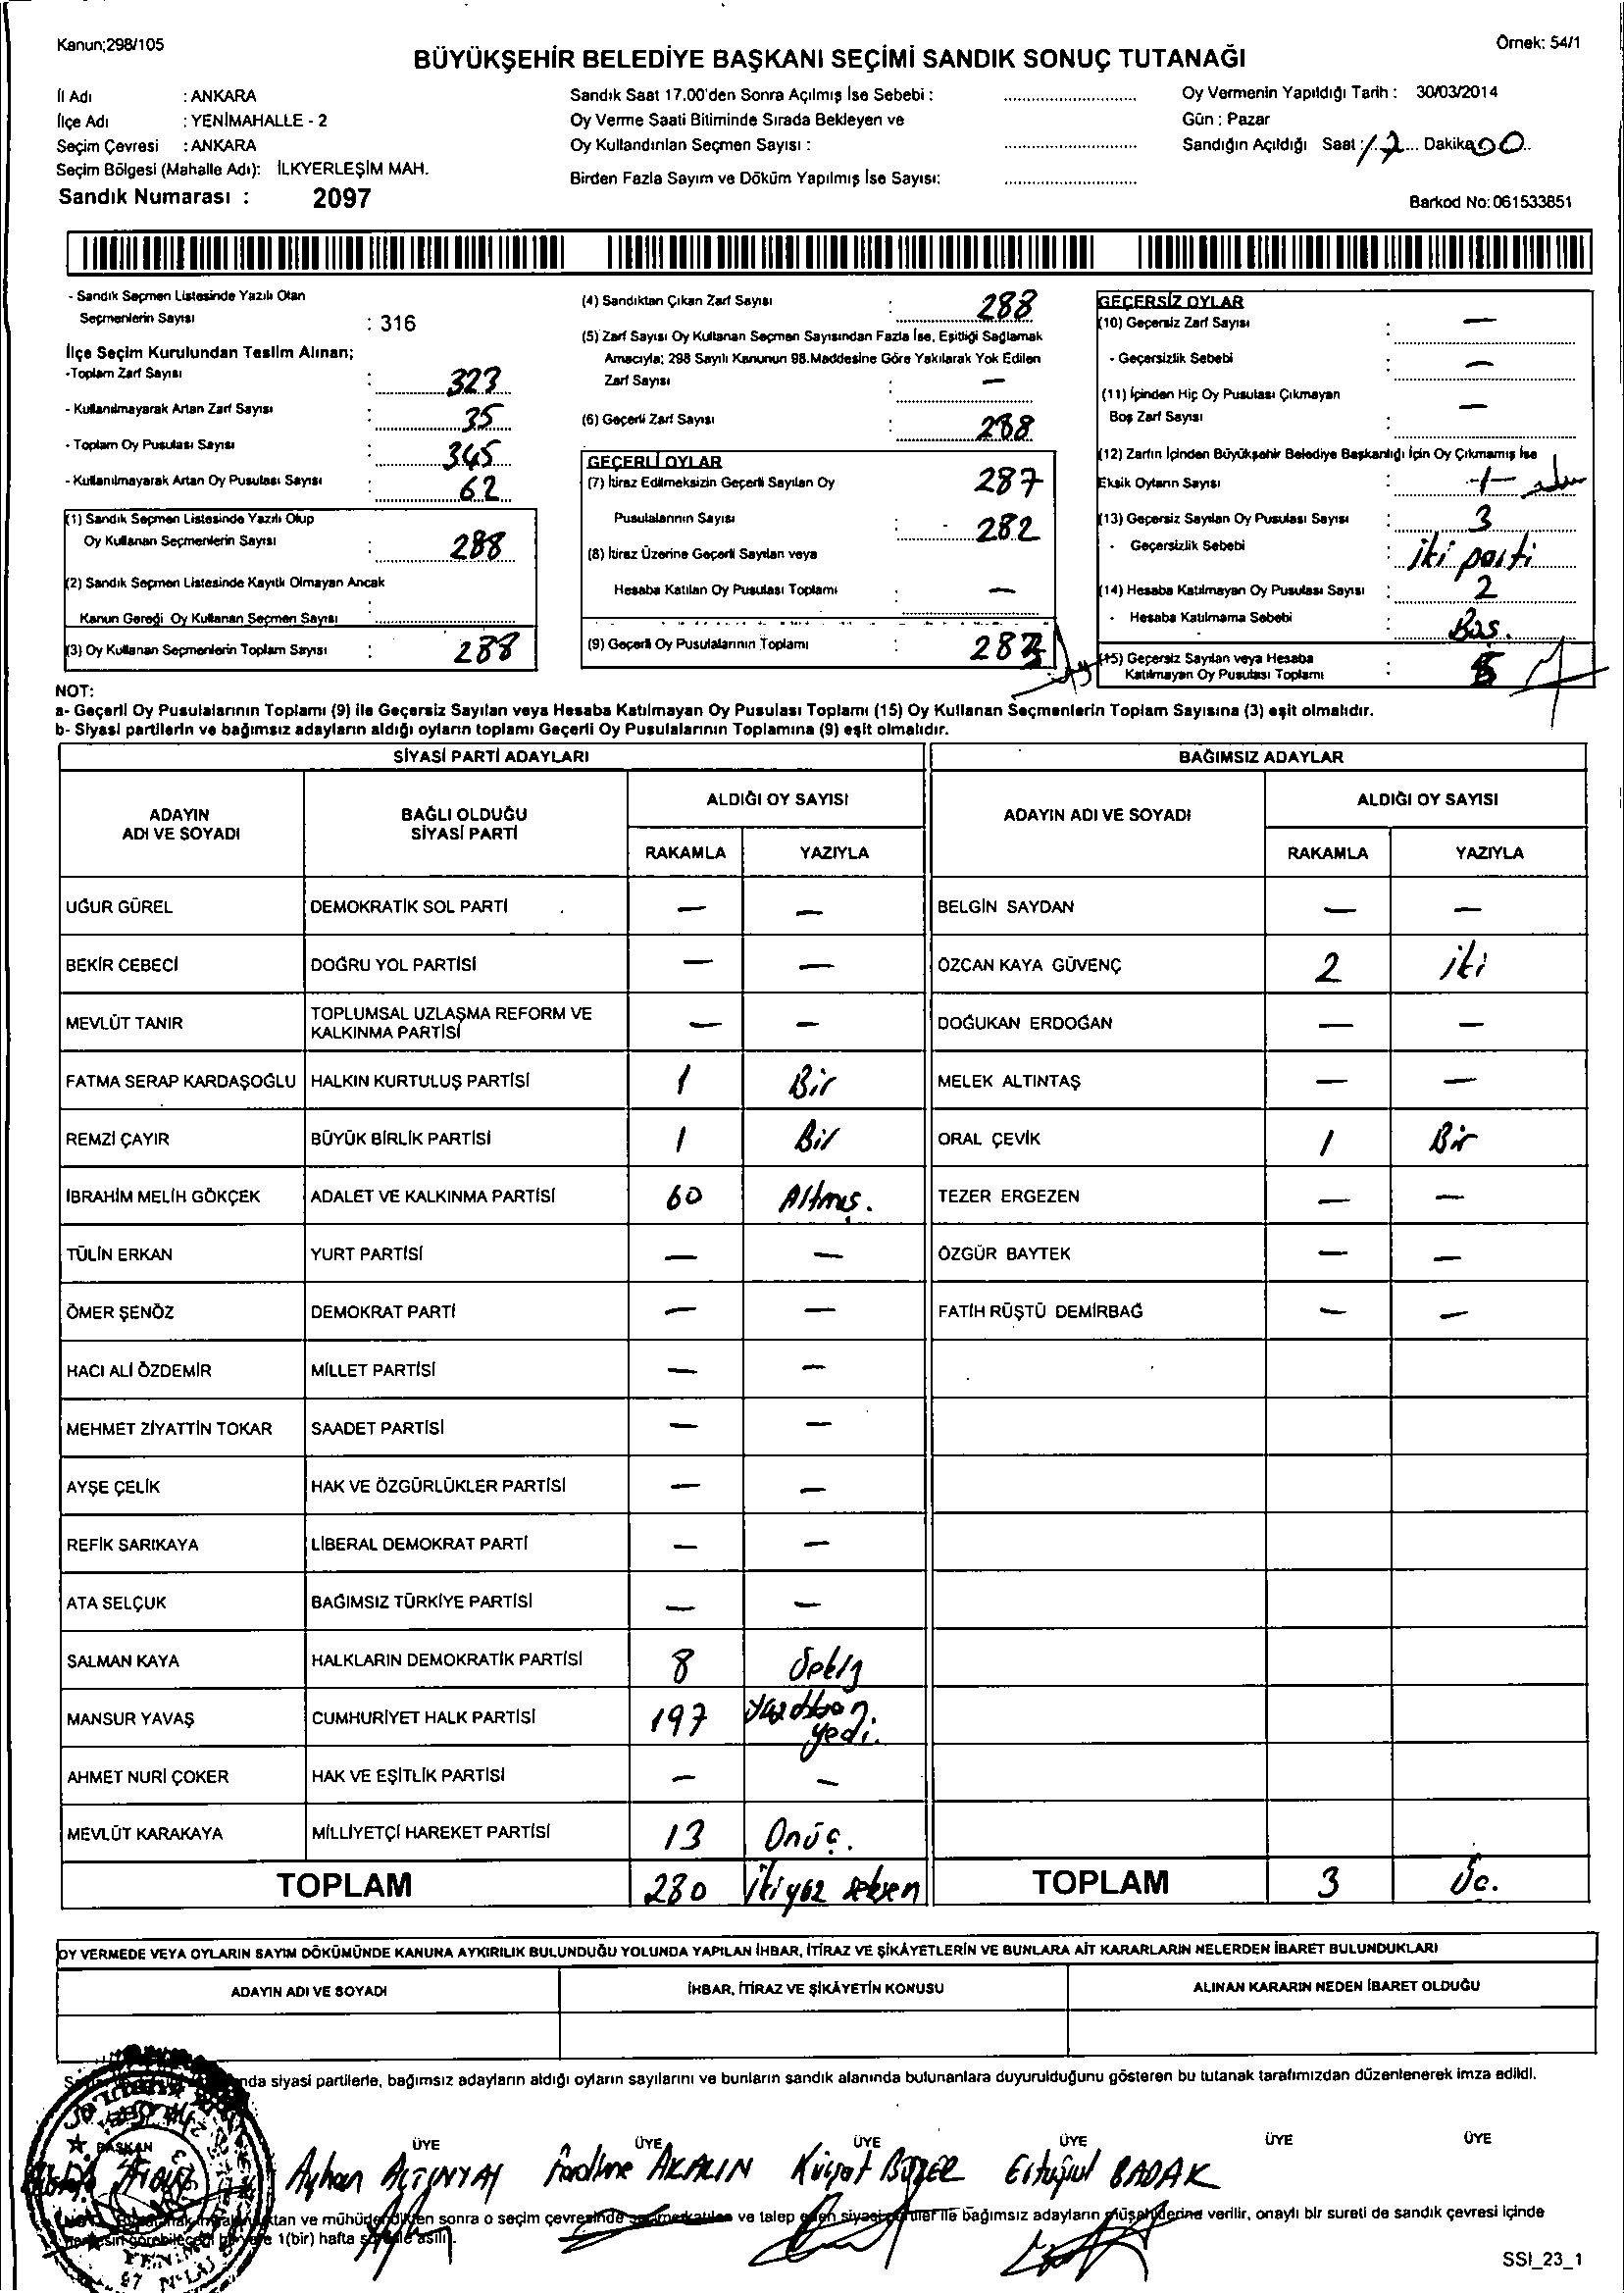 Kanun;298/105
Örnek: 54/1
BÜYÜKŞEHİR BELEDİYE BAŞKANI SEÇİMİ SANDIK SONUÇ TUTANAĞI
İl Adı : ANKARA
İlçe Adı : YENİMAHALLE - 2
Seçim Çevresi : ANKARA
Seçim Bölgesi (Mahalle Adı): İLKYERLEŞİM MAH.
Sandık Numarası : 2097
Sandık Saat 17.00'den Sonra Açılmış İse Sebebi :
Oy Verme Saati Bitiminde Sırada Bekleyen ve
Oy Kullandırılan Seçmen Sayısı :
Birden Fazla Sayım ve Döküm Yapılmış İse Sayısı:
Oy Vermenin Yapıldığı Tarih : 30/03/2014
Gün : Pazar
Sandığın Açıldığı Saat : 17 Dakika 00
Barkod No: 061533851
- Sandık Seçmen Listesinde Yazılı Olan
Seçmenlerin Sayısı : 316
İlçe Seçim Kurulundan Teslim Alınan;
-Toplam Zarf Sayısı : 323
- Kullanılmayarak Artan Zarf Sayısı : 35
- Toplam Oy Pusulası Sayısı : 345
- Kullanılmayarak Artan Oy Pusulası Sayısı : 62
(1) Sandık Seçmen Listesinde Yazılı Olup
Oy Kullanan Seçmenlerin Sayısı : 288
(2) Sandık Seçmen Listesinde Kayıtlı Olmayan Ancak
Kanun Gereği Oy Kullanan Seçmen Sayısı :
(3) Oy Kullanan Seçmenlerin Toplam Sayısı : 288
(4) Sandıktan Çıkan Zarf Sayısı : 288
(5) Zarf Sayısı Oy Kullanan Seçmen Sayısından Fazla İse, Eşitliği Sağlamak
Amacıyla; 298 Sayılı Kanunun 98.Maddesine Göre Yakılarak Yok Edilen
Zarf Sayısı : —
(6) Geçerli Zarf Sayısı : 288
GEÇERLİ OYLAR
(7) İtiraz Edilmeksizin Geçerli Sayılan Oy 287
Pusulalarının Sayısı : 282
(8) İtiraz Üzerine Geçerli Sayılan veya
Hesaba Katılan Oy Pusulası Toplamı : —
(9) Geçerli Oy Pusulalarının Toplamı : 283
GEÇERSİZ OYLAR
(10) Geçersiz Zarf Sayısı : —
- Geçersizlik Sebebi : —
(11) İçinden Hiç Oy Pusulası Çıkmayan
Boş Zarf Sayısı : —
(12) Zarfın İçinden Büyükşehir Belediye Başkanlığı İçin Oy Çıkmamış İse
Eksik Oyların Sayısı :
(13) Geçersiz Sayılan Oy Pusulası Sayısı : 3
- Geçersizlik Sebebi : iki parti
(14) Hesaba Katılmayan Oy Pusulası Sayısı : 2
- Hesaba Katılmama Sebebi : Boş.
(15) Geçersiz Sayılan veya Hesaba
Katılmayan Oy Pusulası Toplamı : 5
NOT:
a- Geçerli Oy Pusulalarının Toplamı (9) ile Geçersiz Sayılan veya Hesaba Katılmayan Oy Pusulası Toplamı (15) Oy Kullanan Seçmenlerin Toplam Sayısına (3) eşit olmalıdır.
b- Siyasi partilerin ve bağımsız adayların aldığı oyların toplamı Geçerli Oy Pusulalarının Toplamına (9) eşit olmalıdır.
SİYASİ PARTİ ADAYLARI BAĞIMSIZ ADAYLAR
ADAYIN ADI VE SOYADI BAĞLI OLDUĞU SİYASİ PARTİ ALDIĞI OY SAYISI ADAYIN ADI VE SOYADI ALDIĞI OY SAYISI
RAKAMLA YAZIYLA RAKAMLA YAZIYLA
UĞUR GÜREL DEMOKRATİK SOL PARTİ — — BELGİN SAYDAN — —
BEKİR CEBECİ DOĞRU YOL PARTİSİ — — ÖZCAN KAYA GÜVENÇ 2 iki
MEVLÜT TANIR TOPLUMSAL UZLAŞMA REFORM VE KALKINMA PARTİSİ — — DOĞUKAN ERDOĞAN — —
FATMA SERAP KARDAŞOĞLU HALKIN KURTULUŞ PARTİSİ 1 Bir MELEK ALTINTAŞ — —
REMZİ ÇAYIR BÜYÜK BİRLİK PARTİSİ 1 Bir ORAL ÇEVİK 1 Bir
İBRAHİM MELİH GÖKÇEK ADALET VE KALKINMA PARTİSİ 60 Altmış. TEZER ERGEZEN — —
TÜLİN ERKAN YURT PARTİSİ — — ÖZGÜR BAYTEK — —
ÖMER ŞENÖZ DEMOKRAT PARTİ — — FATİH RÜŞTÜ DEMİRBAĞ — —
HACI ALİ ÖZDEMİR MİLLET PARTİSİ — —
MEHMET ZİYATTİN TOKAR SAADET PARTİSİ — —
AYŞE ÇELİK HAK VE ÖZGÜRLÜKLER PARTİSİ — —
REFİK SARIKAYA LİBERAL DEMOKRAT PARTİ — —
ATA SELÇUK BAĞIMSIZ TÜRKİYE PARTİSİ — —
SALMAN KAYA HALKLARIN DEMOKRATİK PARTİSİ 8 Sekiz
MANSUR YAVAŞ CUMHURİYET HALK PARTİSİ 197 yüzdoksan yedi.
AHMET NURİ ÇOKER HAK VE EŞİTLİK PARTİSİ — —
MEVLÜT KARAKAYA MİLLİYETÇİ HAREKET PARTİSİ 13 Onüç.
TOPLAM 280 ikiyüz seksen TOPLAM 3 Üç.
OY VERMEDE VEYA OYLARIN SAYIM DÖKÜMÜNDE KANUNA AYKIRILIK BULUNDUĞU YOLUNDA YAPILAN İHBAR, İTİRAZ VE ŞİKÂYETLERİN VE BUNLARA AİT KARARLARIN NELERDEN İBARET BULUNDUKLARI
ADAYIN ADI VE SOYADI İHBAR, İTİRAZ VE ŞİKÂYETİN KONUSU ALINAN KARARIN NEDEN İBARET OLDUĞU
siyasi partilerle, bağımsız adayların aldığı oyların sayılarını ve bunların sandık alanında bulunanlara duyurulduğunu gösteren bu tutanak tarafımızdan düzenlenerek imza edildi.
BAŞKAN ÜYE ÜYE ÜYE ÜYE ÜYE ÜYE
Ayhan ALTINYAY AKALIN Kürşat Ertuğrul BADAK
ve mühürlendikten sonra o seçim çevresinde ve talep eden siyasi partiler ile bağımsız adayların müşahitlerine verilir, onaylı bir sureti de sandık çevresi içinde
1(bir) hafta süreyle asılır.
SSI_23_1